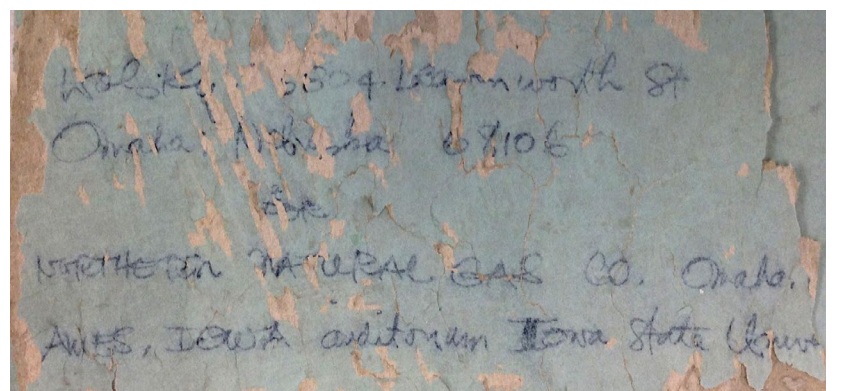 5304 Leavenworth St
Omaha, Nebraska 68106
for
NORTHERN NATURAL GAS CO. Omaha.
AMES, IOWA auditorium Iowa State Univ